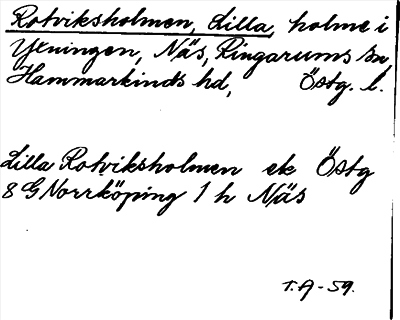 Rotviksholmen, Lilla, holme i
Yxningen, Näs, Ringarums sn,
Hammarkinds hd, Östg. l.
Lilla Rotviksholmen ek Östg
8 G Norrköping 1 h Näs
T.A-59.